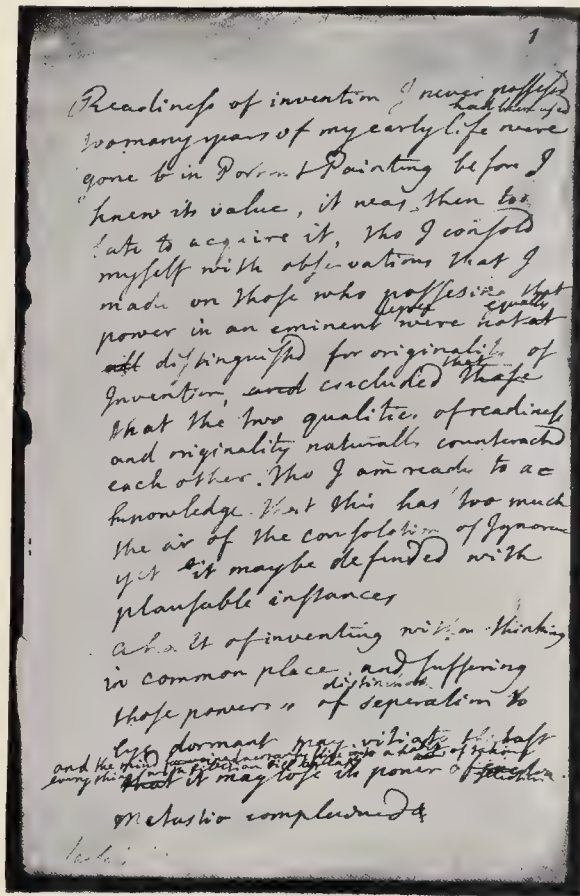 1
Readiness of invention I never possessed
had been used
too many years of my early life were
gone by in Portrait Painting before I
knew its value, it was then too
late to acquire it, tho I consold
myself with observations that I
made on those who possesing that
power in an eminent were not at
equally
all distinguished for originality of
Invention, and concluded those
that
that the two qualities of readiness
and originality naturally counteracted
each other. tho I am ready to ac
knowledge that this has too much
the air of the consolation of Ignorance
yet it may be defended with
plausable instances
a habit of inventing without thinking
in common place and suffering
distinction
those powers of seperation to
lye dormant may vitiate the tast
and the mind
everything
that it may lose its power of
Metastio complained